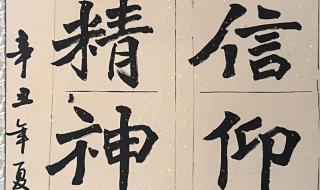 信仰
精神
辛丑年夏